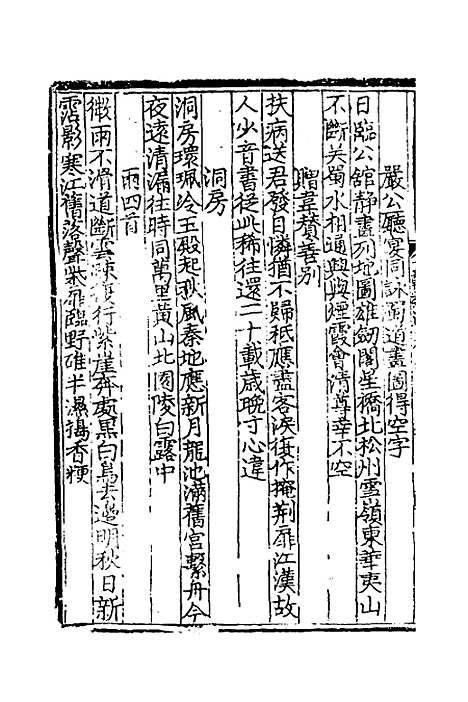 嚴公聽宴同詠蜀道畫圖得空字
日臨公舘静畫列地圖雄劔閣星橋北松州雪嶺東華夷山
不斷吴蜀水相通興與煙霞會清尊幸不空
贈韋賛善別
扶病送君發自憐猶不歸秪應盡客淚復作掩荆扉江漢故
人少音書從此稀往還二十載歲晚寸心違
洞房
洞房環珮冷玉殿起秋風秦地應新月龍池滿舊宫繫舟今
夜遠清漏往時同萬里黄山北園陵白露中
雨四首
微雨不滑道斷雲踈復行紫崖奔處黒白鳥去邊明秋日新
霑影寒江舊落聲柴扉臨野碓半濕擣香粳